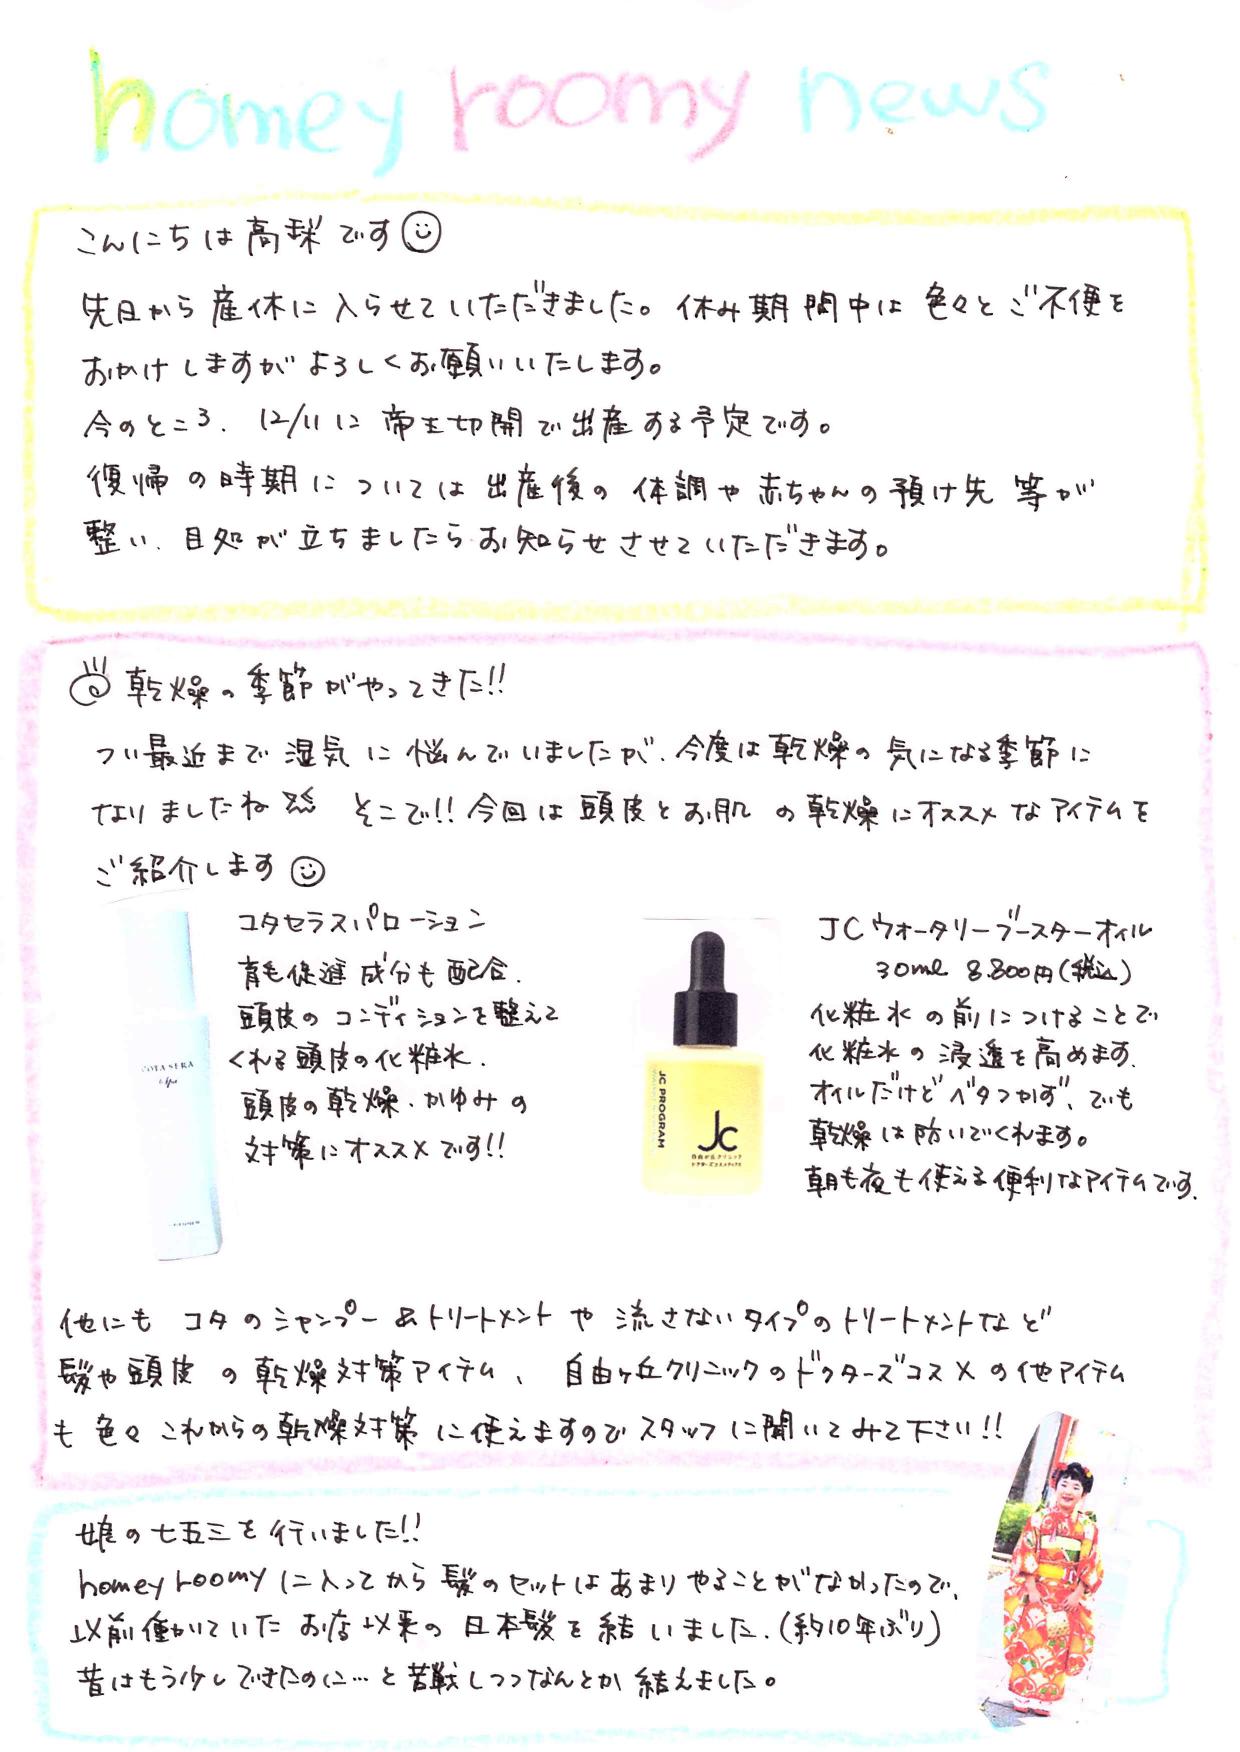 homey roomy news
こんにちは高梨です
先日から産休に入らせていただきました。休み期間中は色々とご不便を
おかけしますがよろしくお願いいたします。
今のところ、12/11に帝王切開で出産する予定です。
復帰の時期については出産後の体調や赤ちゃんの預け先等が
整い、目処が立ちましたらお知らせさせていただきます。
乾燥の季節がやってきた!!
つい最近まで湿気に悩んでいましたが、今度は乾燥の気になる季節に
なりましたね そこで!!今回は頭皮とお肌の乾燥にオススメなアイテムを
ご紹介します
コタセラスパローション
育毛促進成分も配合。
頭皮のコンディションを整えて
くれる頭皮の化粧水。
頭皮の乾燥・かゆみの
対策にオススメです!!
COTA SERA
Spa
JCウォータリーブースターオイル
30ml 8.800円(税込)
化粧水の前につけることで
化粧水の浸透を高めます。
オイルだけどベタつかず、でも
乾燥は防いでくれます。
朝も夜も使える便利なアイテムです。
JC PROGRAM
JC
自由が丘クリニック
ドクターズコスメティクス
他にもコタのシャンプー&トリートメントや流さないタイプのトリートメントなど
髪や頭皮の乾燥対策アイテム、自由ヶ丘クリニックのドクターズコスメの他アイテム
も色々これからの乾燥対策に使えますのでスタッフに聞いてみて下さい!!
娘の七五三を行いました!!
homey roomyに入ってから髪のセットはあまりやることがなかったので、
以前働いていたお店以来の日本髪を結いました。(約10年ぶり)
昔はもう少しできたのに…と苦戦しつつなんとか結えました。